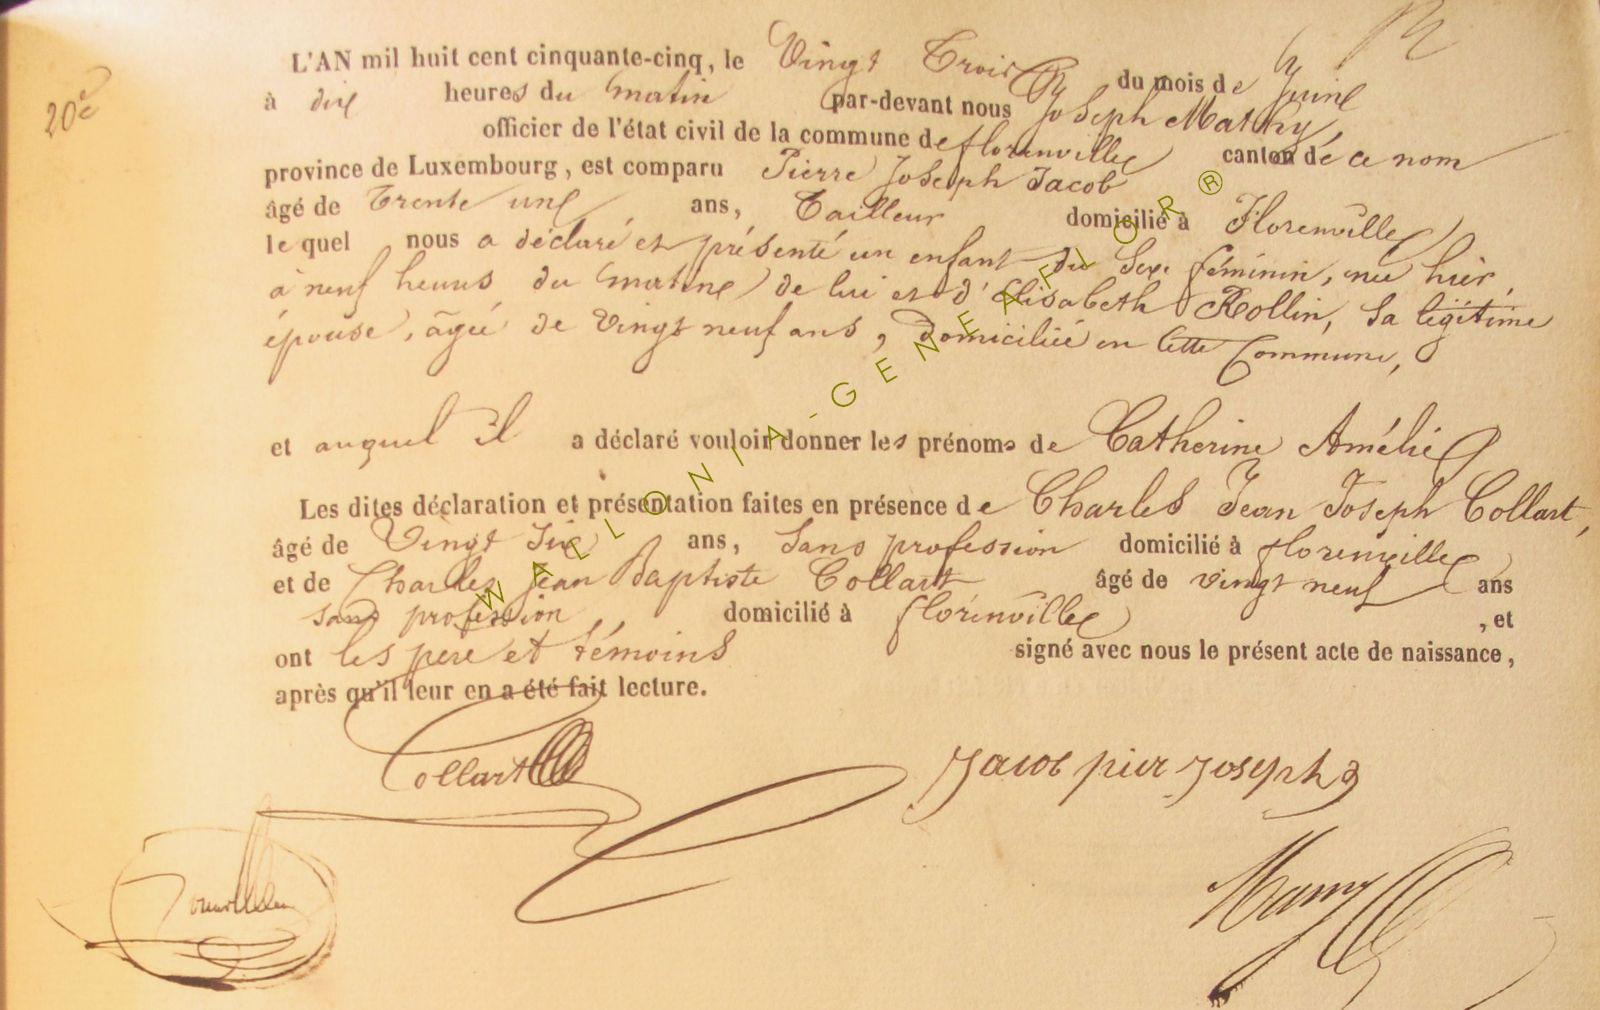 20e
L'AN mil huit cent cinquante-cinq, le Vingt Trois du mois de Juin
à dix heures du matin par-devant nous Joseph Mathy,
officier de l'état civil de la commune de florenville canton de ce nom
province de Luxembourg, est comparu Pierre Joseph Jacob
âgé de Trente un ans, Tailleur domicilié à Florenville
le quel nous a déclaré et présenté un enfant du Sexe féminin, née hier,
à neuf heures du matin de lui et d'Elisabeth Rollin, Sa légitime
épouse, âgée de vingt neuf ans, domiciliée en cette Commune,
et auquel il a déclaré vouloir donner les prénoms de Catherine Amélie
Les dites déclaration et présentation faites en présence de Charles Jean Joseph Collart,
âgé de Vingt Six ans, Sans profession domicilié à florenville
et de Charles Jean Baptiste Collart âgé de vingt neuf ans
sans profession domicilié à florenville , et
ont les pere et témoins signé avec nous le présent acte de naissance,
après qu'il leur en a été fait lecture.
Collart
Jacob pier Joseph
WALLONIA-GENEAFLOR®